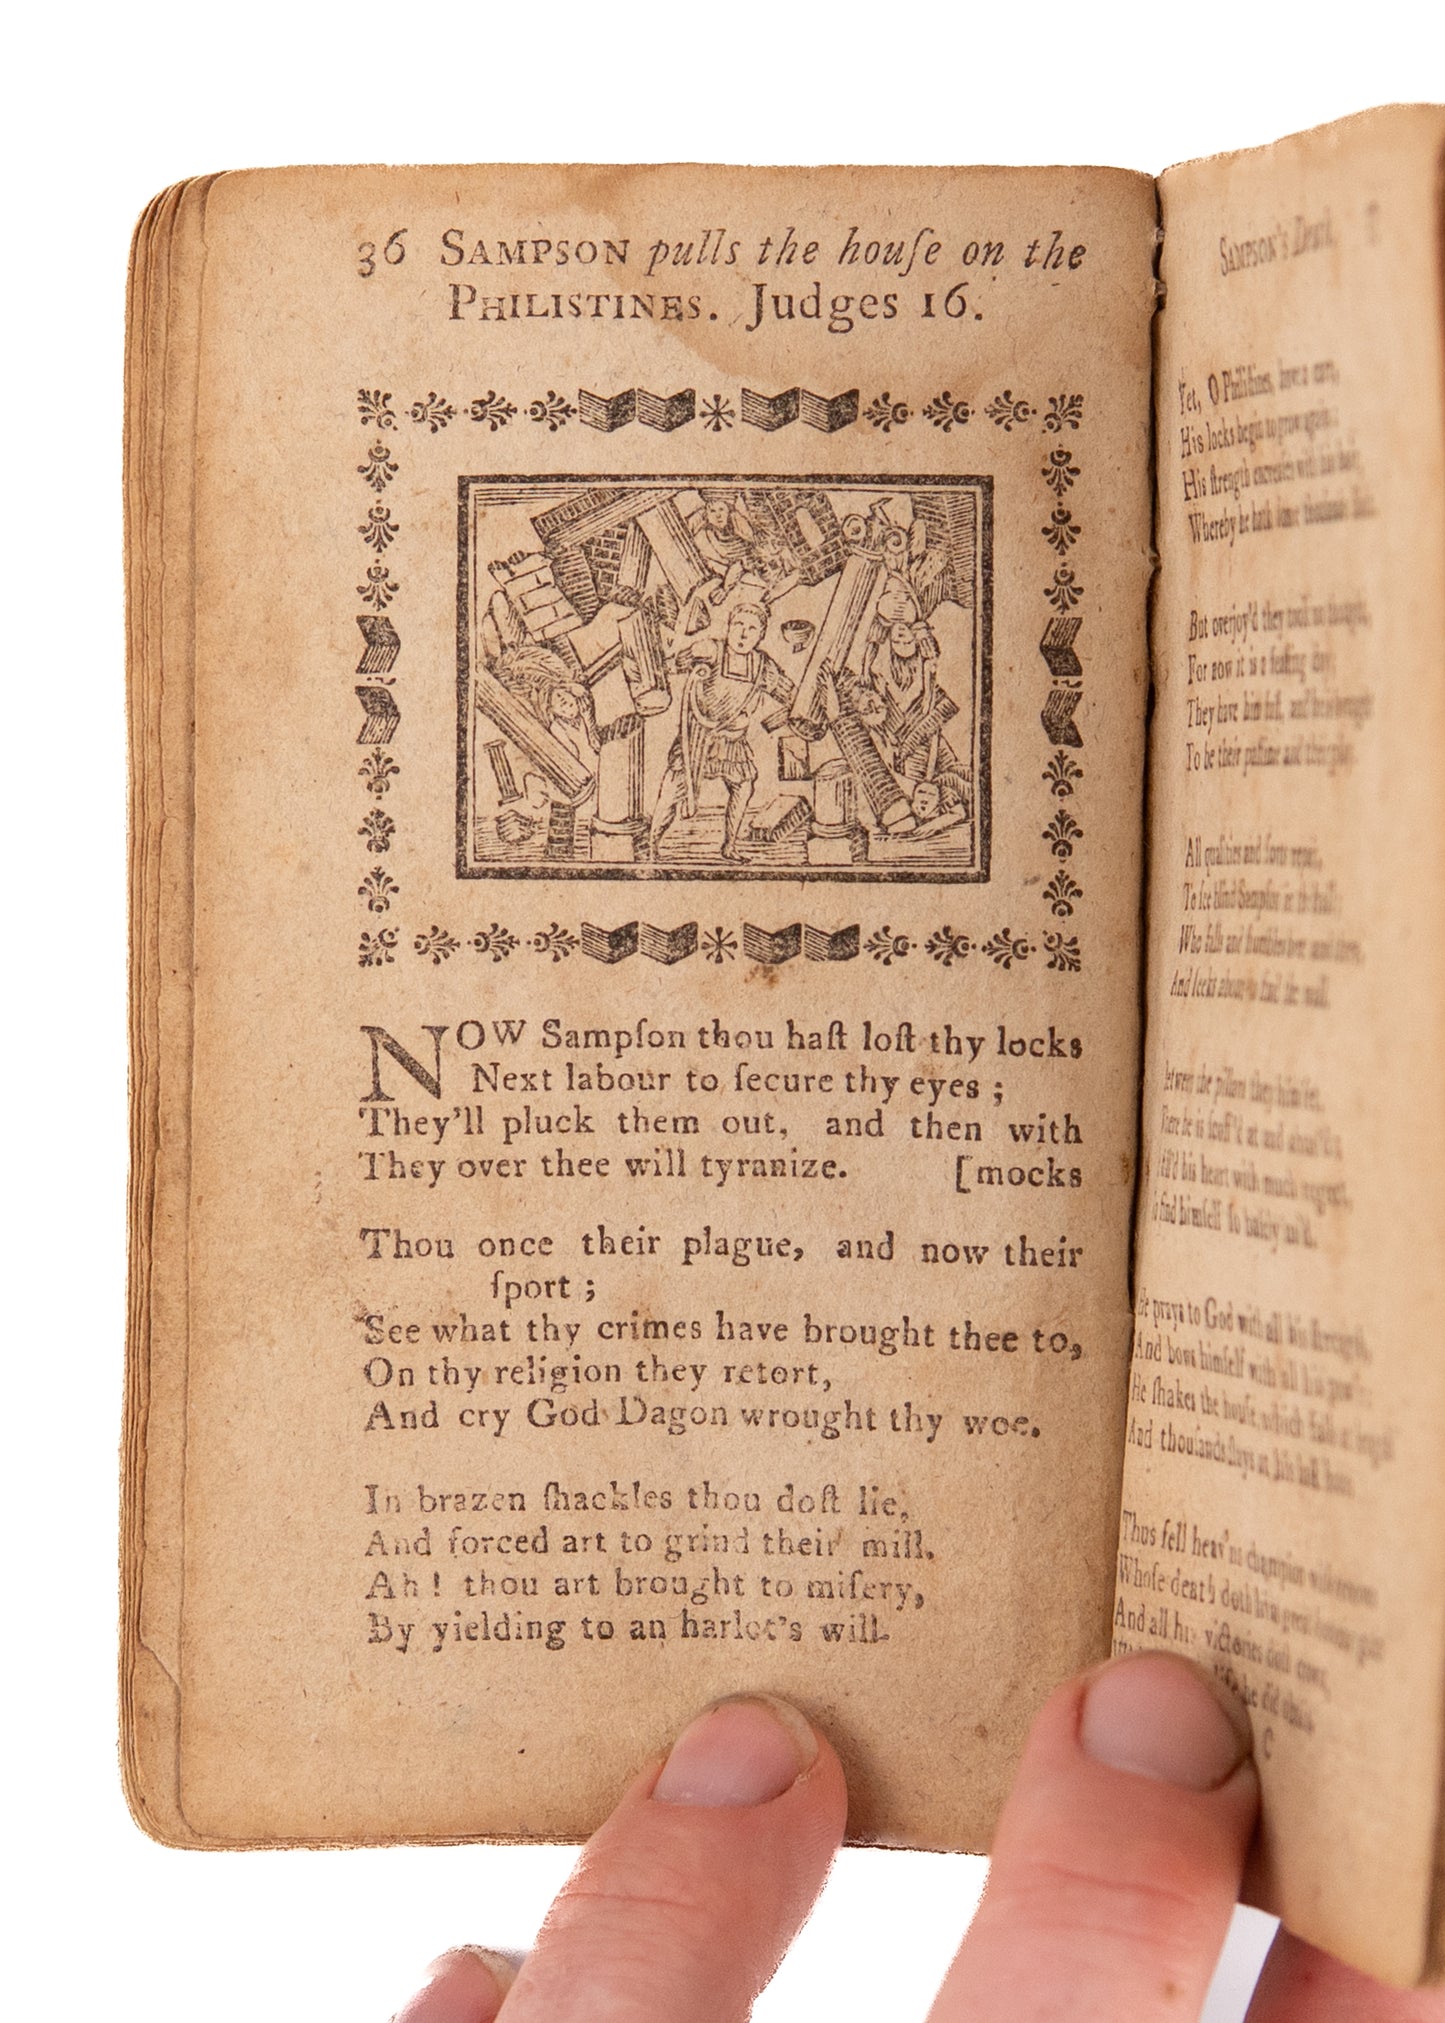 36 SAMPSON pulls the houſe on the
PHILISTINES. Judges 16.
NOW Sampſon thou haſt loſt thy locks
Next labour to ſecure thy eyes ;
They'll pluck them out, and then with
They over thee will tyranize. [mocks
Thou once their plague, and now their
ſport ;
See what thy crimes have brought thee to,
On thy religion they retort,
And cry God Dagon wrought thy woe.
In brazen ſhackles thou doſt lie,
And forced art to grind their mill.
Ah ! thou art brought to miſery,
By yielding to an harlot's will.
SAMPSON's Death.
Yet, O Philiſtines, have a care,
His locks begin to grow again:
His ſtrength encreaſes with his hair,
Whereby he hath
But overjoy'd they
For now it is a feaſting day;
They have him faſt, and he is brought
To be their paſtime and their play.
All qualities and ſorts repair,
To ſee blind Sampſon in the hall;
Who falls and ſtumbles
And ſeeks about to find the wall.
between the pillars they him ſet,
There he is ſcoff'd at and abuſ'd;
his heart with much regret,
find himſelf ſo baſely us'd.
He prays to God with all his ſtrength,
And bows himſelf with all his pow'r
He ſhakes the houſe, which falls at length
And thouſands ſlays at his laſt hour.
Thus fell heav'ns champion
Whoſe death doth him great honour give
And all his victories doth crown,
life he did
C